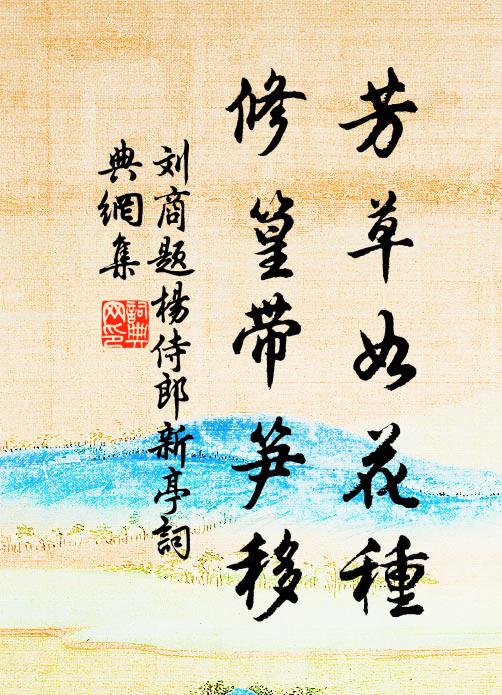 芳草如花種
修篁帶笋移
刘商题楊侍郎新亭詞
典網集
詞典网印